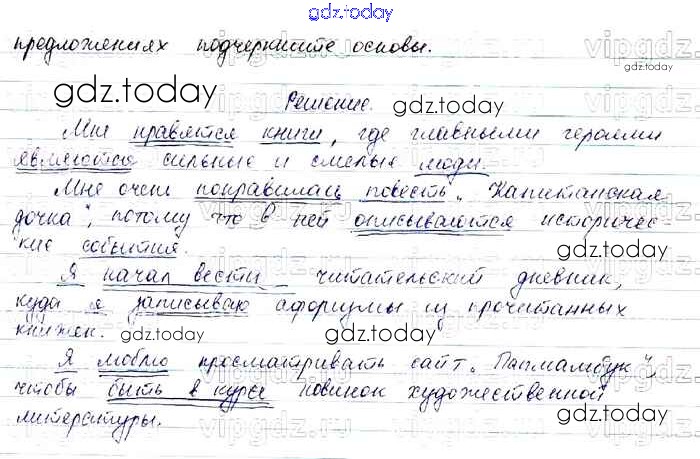 gdz.today
предложениях подчеркните основы.
gdz.today
gdz.today
Решение.
gdz.today
Мне нравятся книги, где главными героями
являются сильные и смелые люди.
Мне очень понравилась повесть „Капитанская
дочка", потому что в ней описываются историчес-
кие события.
gdz.today
Я начал вести читательский дневник,
куда я записываю афоризмы из прочитанных
книжек.
gdz.today
gdz.today
Я люблю просматривать сайт „Папмамбук",
чтобы быть в курсе новинок художественной
gdz.today
литературы.